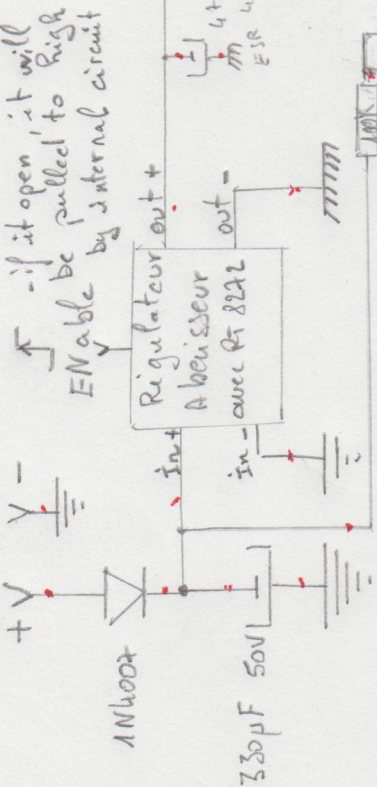 - if it open, it will
ENable be pulled to high
by internal circuit
+V
V -
1N4007
330µF 50V
in +
in -
Régulateur
Abaisseur
avec RT 8272
out +
out -
47
ESR
100K